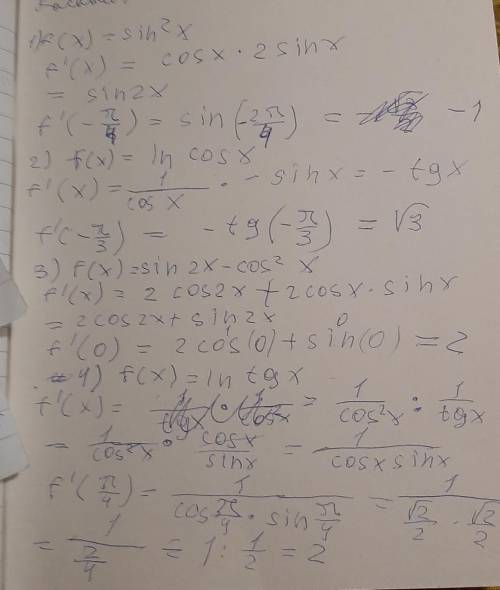 1) f(x) = sin²x
f'(x) = cosx · 2sinx
= sin2x
f'(-π/4) = sin(-2π/4) = -1
2) f(x) = ln cosx
f'(x) = 1/cosx · -sinx = -tgx
f'(-π/3) = -tg(-π/3) = √3
3) f(x) = sin2x - cos²x
f'(x) = 2cos2x + 2cosx · sinx
= 2cos2x + sin2x
f'(0) = 2cos(0) + sin(0) = 2
4) f(x) = ln tgx
f'(x) = = 1/cos²x : 1/tgx
= 1/cos²x · cosx/sinx = 1/cosx sinx
f'(π/4) = 1/cos π/4 · sin π/4 = 1/√2/2 · √2/2
= 1/2/4 = 1 : 1/2 = 2